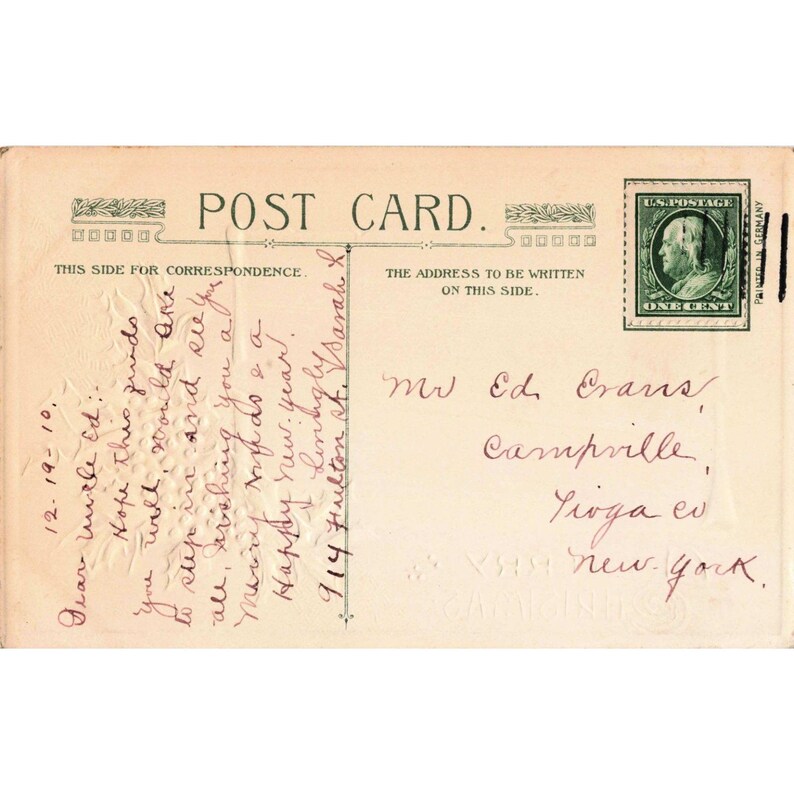 POST CARD.
THIS SIDE FOR CORRESPONDENCE.
12-19-10.
Dear Uncle Ed:-
Hope this finds
you well, would like
to step in and see you
all, Wishing you a
Merry Xmas & a
Happy New Year.
Lovingly
Sarah L
914 Fulton St.
THE ADDRESS TO BE WRITTEN
ON THIS SIDE.
U.S. POSTAGE
ONE CENT
PRINTED IN GERMANY
Mr Ed Evans,
Campville,
Tioga Co
New York.